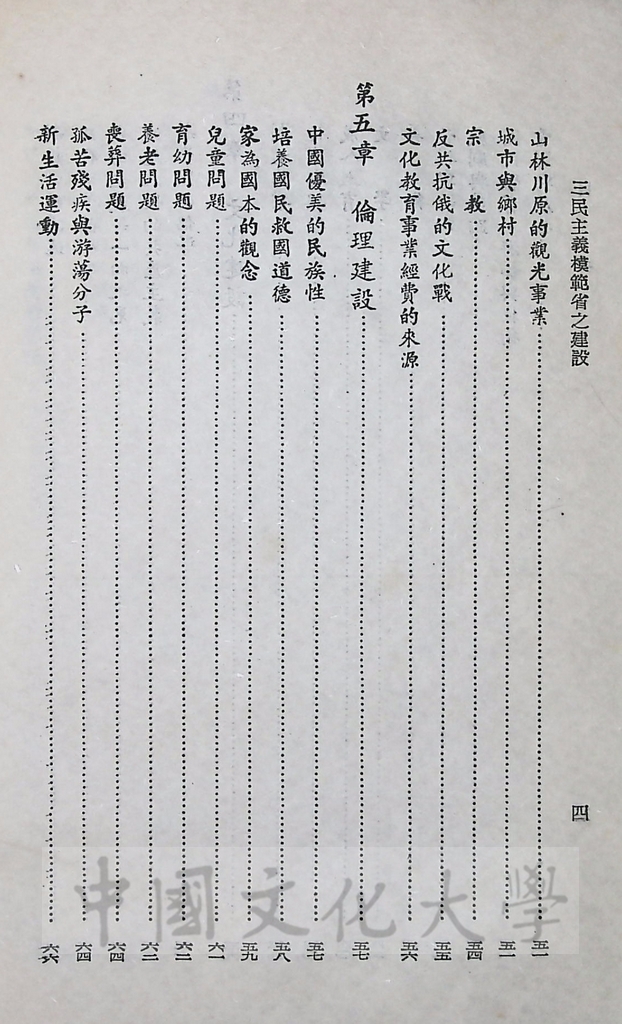 三民主義模範省之建設
四
山林川原的觀光事業……五一
城市與鄉村……五一
宗 教……五四
反共抗俄的文化戰……五五
文化教育事業經費的來源……五六
第五章 倫理建設……五七
中國優美的民族性……五七
培養國民救國道德……五八
家為國本的觀念……五九
兒童問題……六一
育幼問題……六二
養老問題……六二
喪葬問題……六四
孤苦殘疾與游蕩分子……六四
新生活運動……六六
中國文化大學